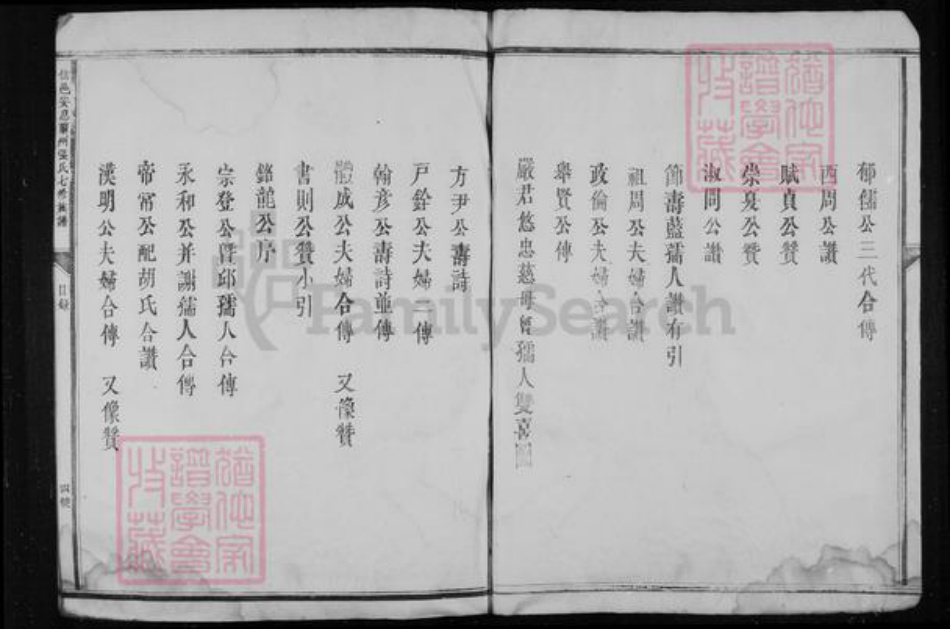 郁儒公三代合傳
西周公讚
賦貞公贊
崇夏公贊
淑問公讚
節壽藍孺人讚有引
祖周公夫婦合讚
政倫公夫婦合讚
舉賢公傳
嚴君悠忠慈母曾孺人雙喜圖
方尹公壽詩
戸銓公夫婦二傳
翰彥公壽詩並傳
體成公夫婦合傳 又像贊
書則公贊小引
銘龍公序
宗登公暨邱孺人合傳
永和公并謝孺人合傳
帝甯公配胡氏合讚
漢明公夫婦合傳 又像贊
信邑安息蘭州張氏七修族譜
目錄
FamilySearch